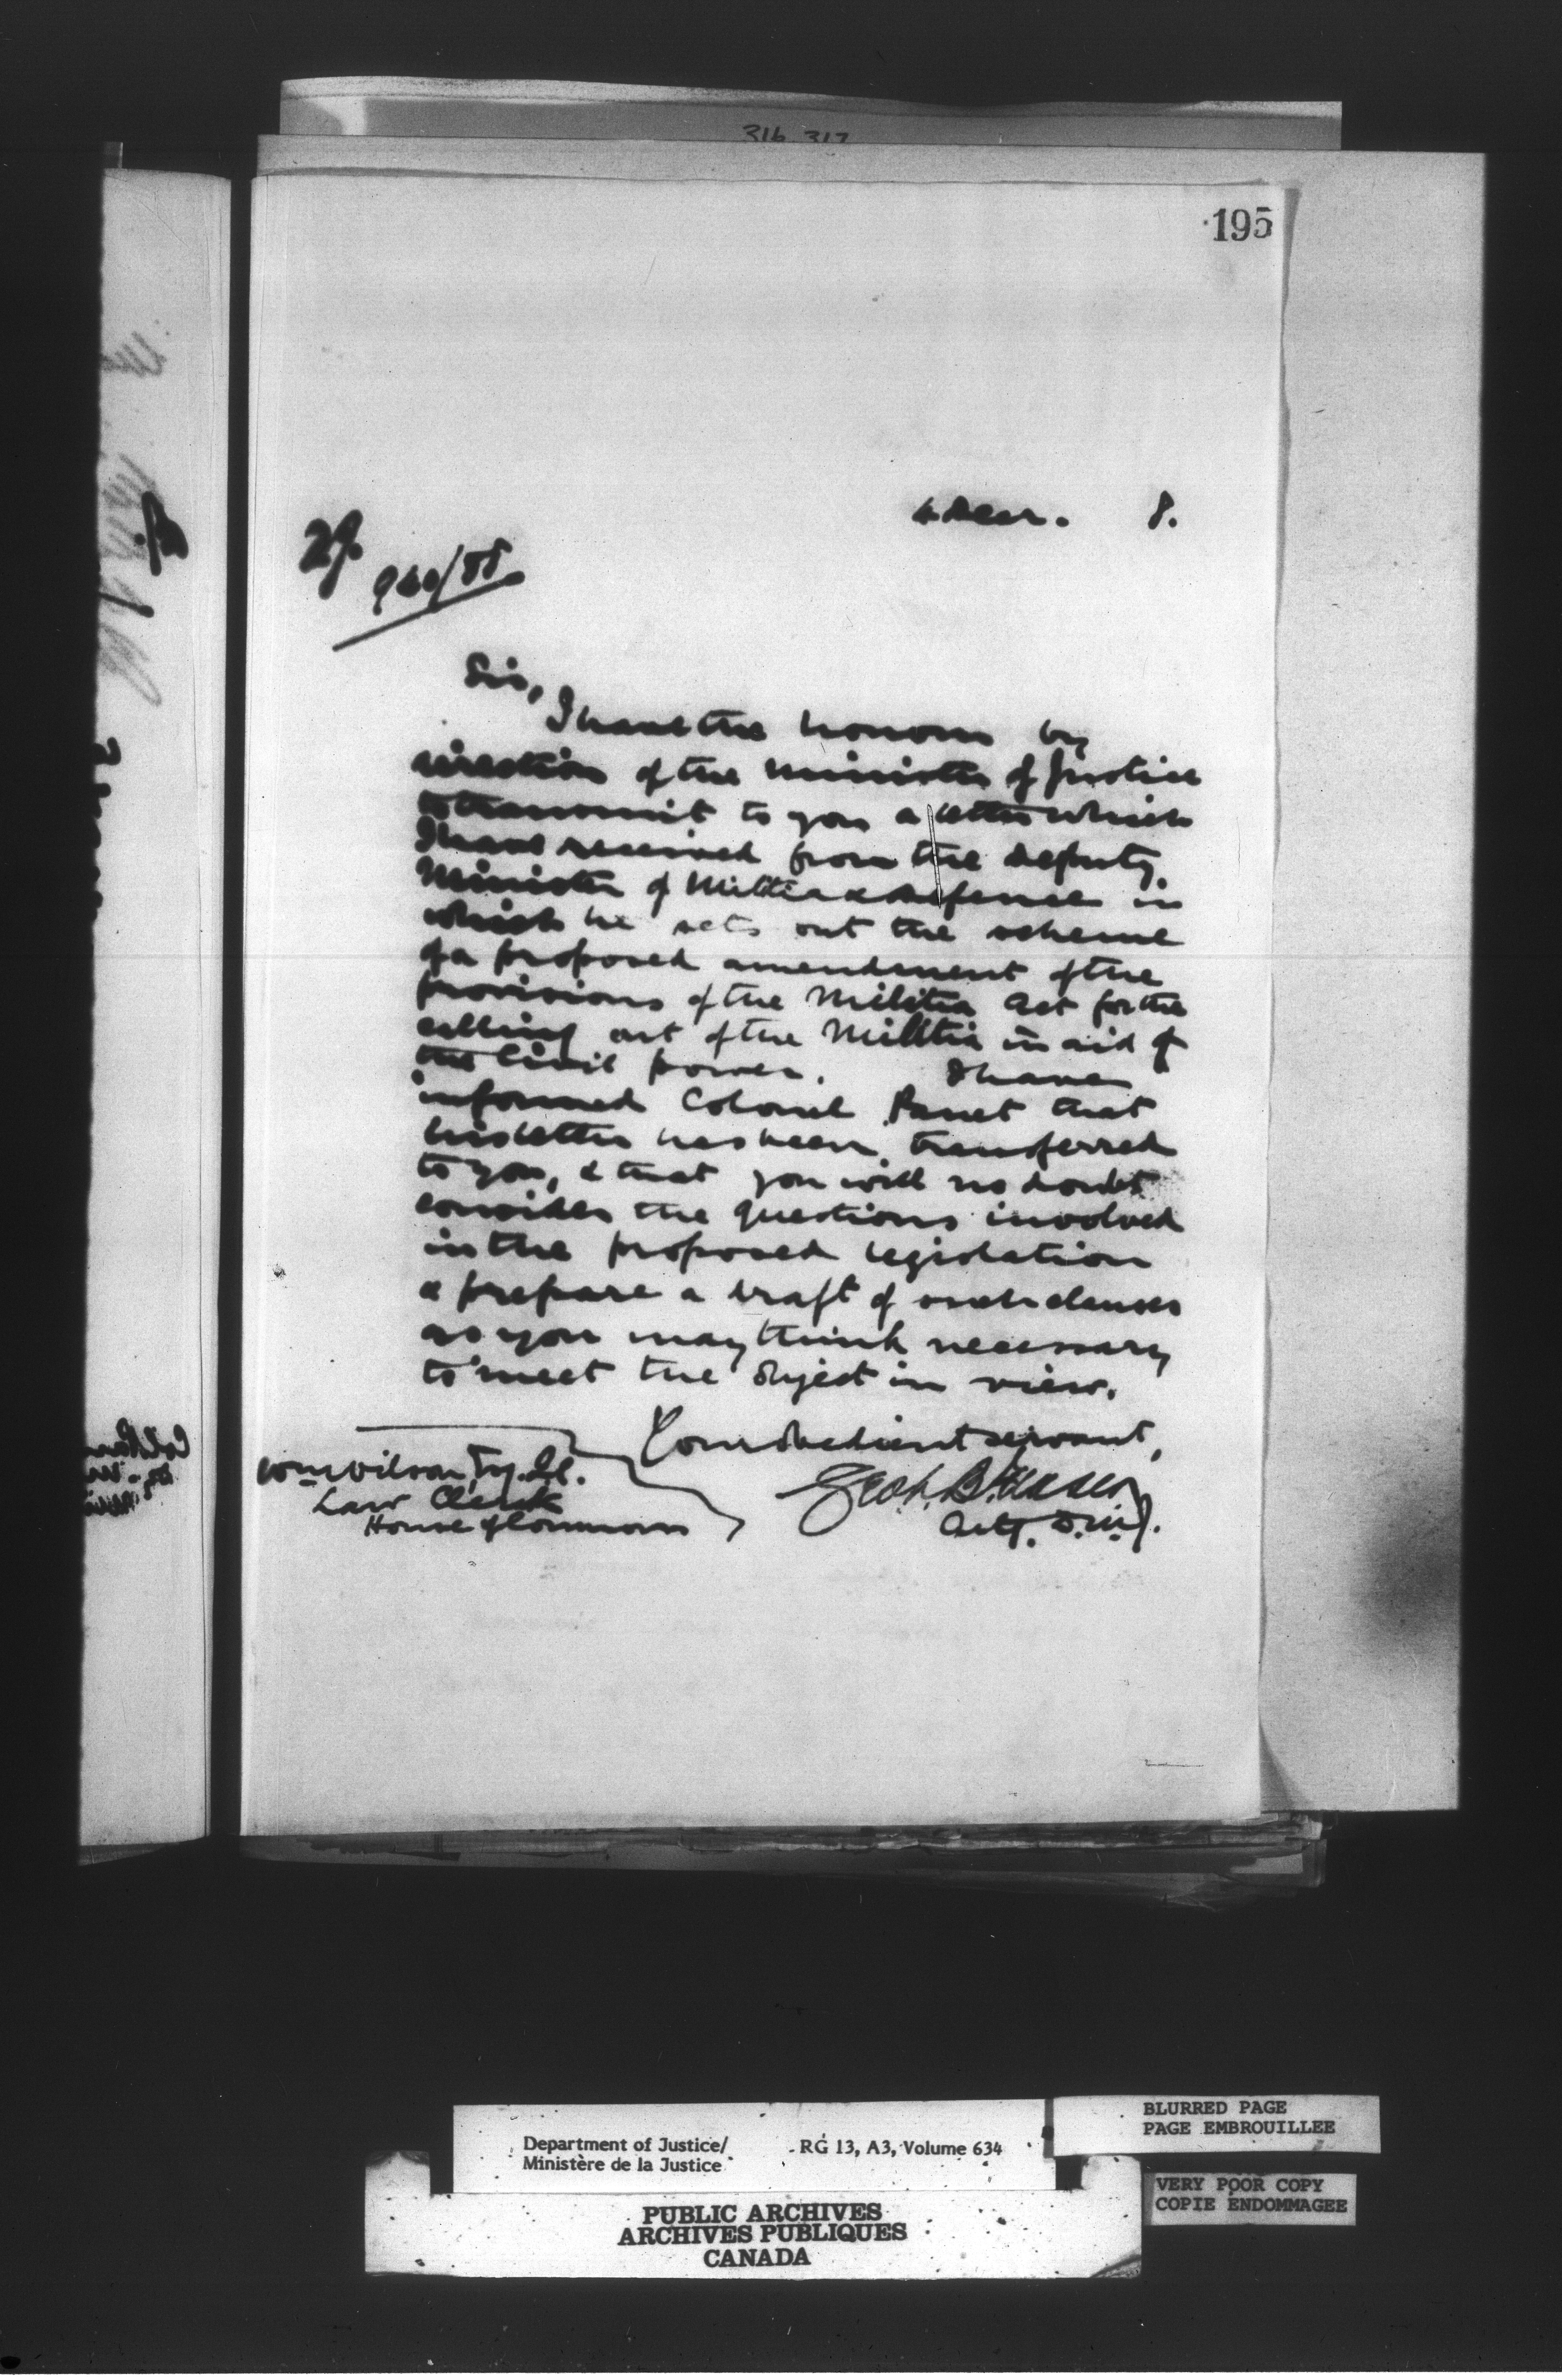 316 317
195
Decr. 8.
940/88
Sir,
I have the honour by
direction of the Minister of Justice
to transmit to you a letter which
I have received from the Deputy
Minister of Militia & Defence in
which he sets out the scheme
of a proposed amendment of the
provisions of the Militia Act for the
calling out of the Militia in aid of
the Civil power. I have
informed Colonel Panet that
his letter has been transferred
to you, & that you will no doubt
consider the questions involved
in the proposed legislation
& prepare a draft of such clauses
as you may think necessary
to meet the object in view.
Your obedient servant,
Wm Wilson, Esq.
Law Clerk
House of Commons
Geo. B.
Actg. D.M.J.
Department of Justice/ RG 13, A3, Volume 634
Ministère de la Justice
PUBLIC ARCHIVES
ARCHIVES PUBLIQUES
CANADA
BLURRED PAGE
PAGE EMBROUILLEE
VERY POOR COPY
COPIE ENDOMMAGEE